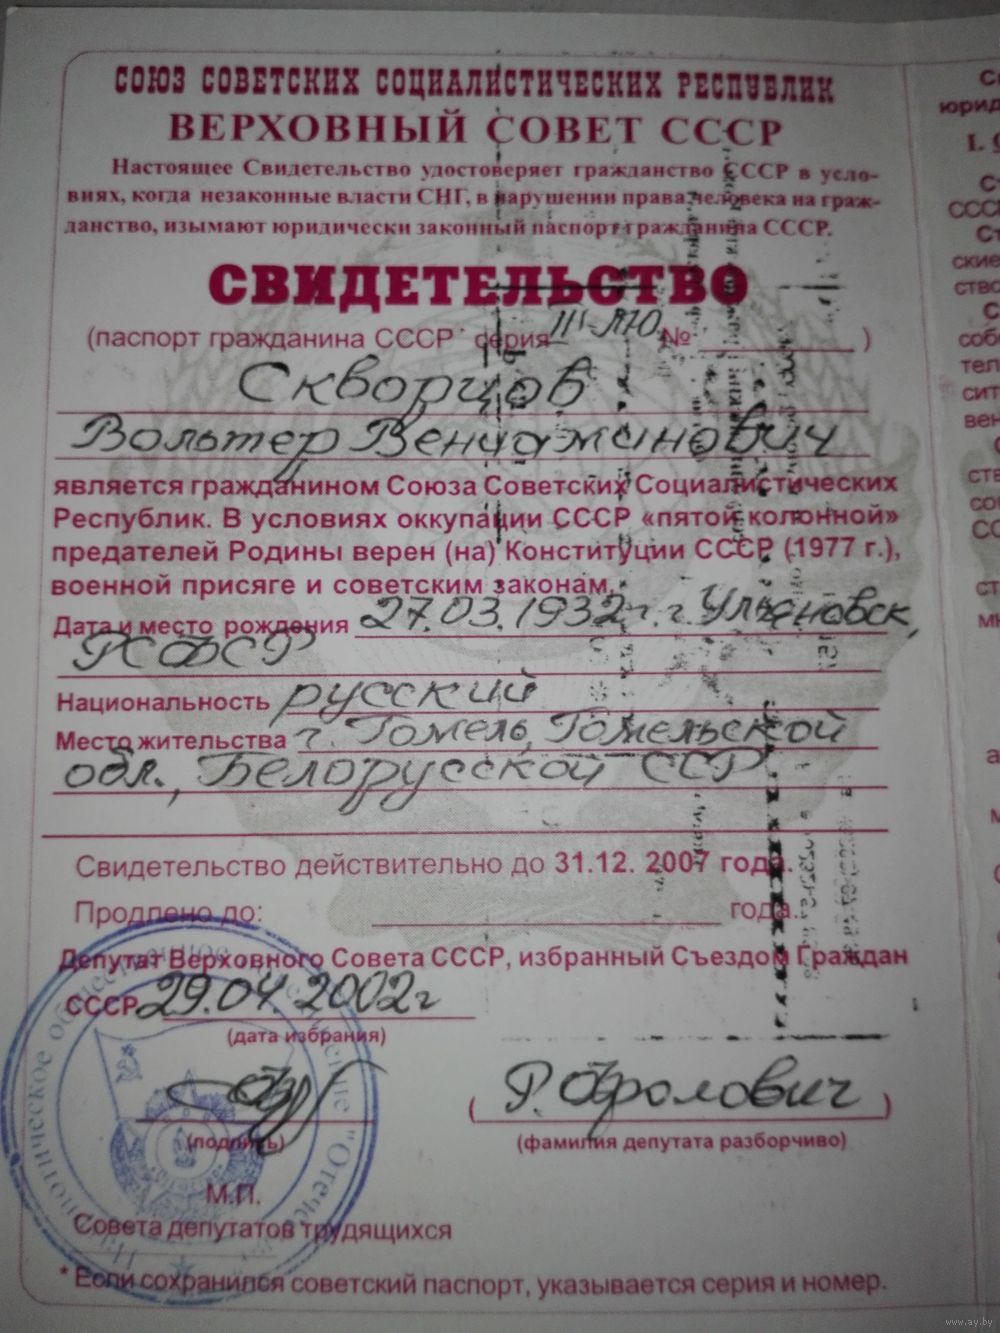 СОЮЗ СОВЕТСКИХ СОЦИАЛИСТИЧЕСКИХ РЕСПУБЛИК
ВЕРХОВНЫЙ СОВЕТ СССР
Настоящее Свидетельство удостоверяет гражданство СССР в усло-
виях, когда незаконные власти СНГ, в нарушении права человека на граж-
данство, изымают юридически законный паспорт гражданина СССР.
СВИДЕТЕЛЬСТВО
(паспорт гражданина СССР* серия III-ЛЮ № )
Скворцов
Вольтер Вениаминович
является гражданином Союза Советских Социалистических
Республик. В условиях оккупации СССР «пятой колонной»
предателей Родины верен (на) Конституции СССР (1977 г.),
военной присяге и советским законам.
Дата и место рождения 27.03.1932 г. г. Ульяновск,
РСФСР
Национальность русский
Место жительства г. Гомель, Гомельской
обл., Белорусской ССР
Свидетельство действительно до 31.12. 2007 года.
Продлено до: года.
Депутат Верховного Совета СССР, избранный Съездом Граждан
СССР 29.04.2002г
(дата избрания)
(Р. Фролович)
(подпись) (фамилия депутата разборчиво)
М.П.
Совета депутатов трудящихся
* Если сохранился советский паспорт, указывается серия и номер.
www.ay.by